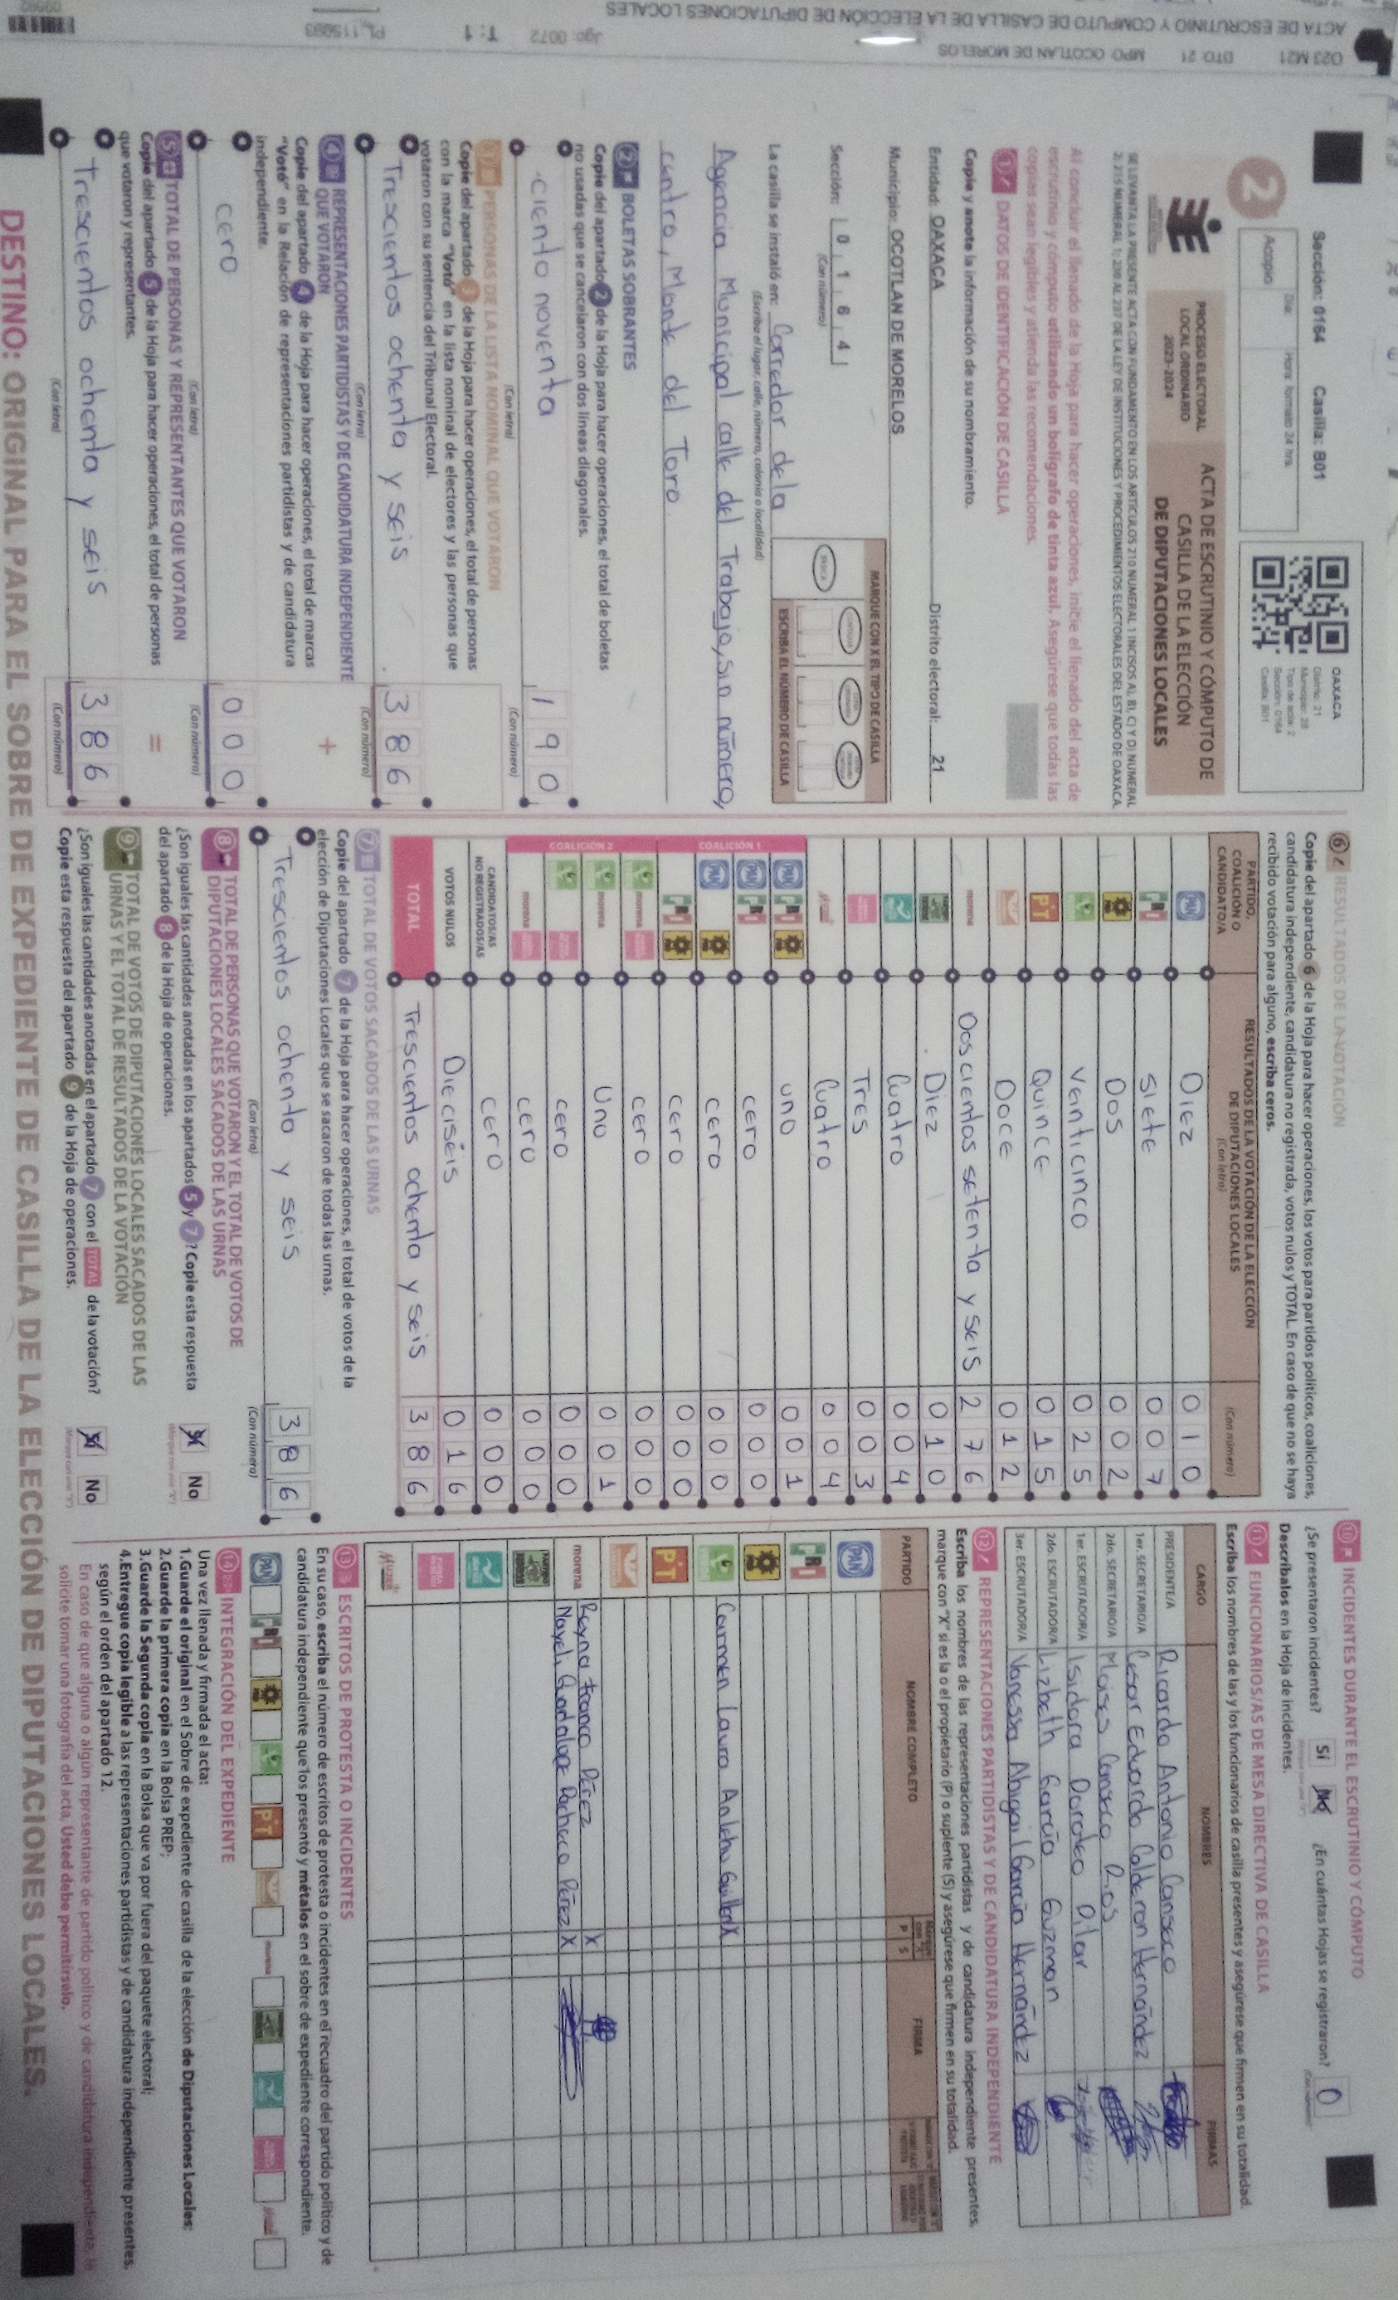 023 M21 DTO: 21 MPO: OCOTLAN DE MORELOS
ACTA DE ESCRUTINIO Y CÓMPUTO DE CASILLA DE LA ELECCIÓN DE DIPUTACIONES LOCALES
Jgo: 0072 T: 1
Sección: 0164 Casilla: B01
2
Acopio
Día: Hora: formato 24 hrs.
OAXACA
Distrito: 21
Tipo de acta: 2
Sección: 0164
Casilla: B01
PROCESO ELECTORAL
LOCAL ORDINARIO
2023-2024
ACTA DE ESCRUTINIO Y CÓMPUTO DE
CASILLA DE LA ELECCIÓN
DE DIPUTACIONES LOCALES
Al concluir el llenado de la Hoja para hacer operaciones, inicie el llenado del acta de
escrutinio y cómputo utilizando un bolígrafo de tinta azul. Asegúrese que todas las
copias sean legibles y atienda las recomendaciones.
1 DATOS DE IDENTIFICACIÓN DE CASILLA
Copie y anote la información de su nombramiento.
Entidad: OAXACA Distrito electoral: 21
Municipio: OCOTLAN DE MORELOS
Sección: 0 1 6 4
(Con número)
MARQUE CON X EL TIPO DE CASILLA
ESCRIBA EL NÚMERO DE CASILLA
La casilla se instaló en: Corredor de la
(Escriba el lugar, calle, número, colonia o localidad)
Agencia Municipal calle del Trabajo, sin número,
centro, Monte del Toro.
2 BOLETAS SOBRANTES
Copie del apartado 2 de la Hoja para hacer operaciones, el total de boletas
no usadas que se cancelaron con dos líneas diagonales.
ciento noventa 1 9 0
(Con letra) (Con número)
3 PERSONAS DE LA LISTA NOMINAL QUE VOTARON
Copie del apartado 3 de la Hoja para hacer operaciones, el total de personas
con la marca "Votó" en la lista nominal de electores y las personas que
votaron con su sentencia del Tribunal Electoral.
Trescientos ochenta y seis 3 8 6
(Con letra) (Con número)
4 REPRESENTACIONES PARTIDISTAS Y DE CANDIDATURA INDEPENDIENTE
QUE VOTARON
Copie del apartado 4 de la Hoja para hacer operaciones, el total de marcas
"Votó" en la Relación de representaciones partidistas y de candidatura
independiente.
+
cero 0 0 0
(Con letra) (Con número)
5 TOTAL DE PERSONAS Y REPRESENTANTES QUE VOTARON
Copie del apartado 5 de la Hoja para hacer operaciones, el total de personas
que votaron y representantes.
=
Trescientos ochenta y seis 3 8 6
(Con letra) (Con número)
6 RESULTADOS DE LA VOTACIÓN
Copie del apartado 6 de la Hoja para hacer operaciones, los votos para partidos políticos, coaliciones,
candidatura independiente, candidatura no registrada, votos nulos y TOTAL. En caso de que no se haya
recibido votación para alguno, escriba ceros.
PARTIDO,
COALICIÓN O
CANDIDATO/A
RESULTADOS DE LA VOTACIÓN DE LA ELECCIÓN
DE DIPUTACIONES LOCALES
(Con letra)
(Con número)
PAN Diez 0 1 0
PRI siete 0 0 7
PRD Dos 0 0 2
Veinticinco 0 2 5
PT Quince 0 1 5
Doce 0 1 2
morena Doscientos setenta y seis 2 7 6
Diez 0 1 0
Cuatro 0 0 4
Tres 0 0 3
Cuatro 0 0 4
COALICIÓN 1
PAN PRI PRD uno 0 0 1
PAN PRI cero 0 0 0
PAN PRD cero 0 0 0
PRI PRD cero 0 0 0
COALICIÓN 2
morena cero 0 0 0
morena Uno 0 0 1
cero 0 0 0
morena cero 0 0 0
CANDIDATOS/AS
NO REGISTRADOS/AS cero 0 0 0
VOTOS NULOS Dieciséis 0 1 6
TOTAL Trescientos ochenta y seis 3 8 6
7 TOTAL DE VOTOS SACADOS DE LAS URNAS
Copie del apartado 7 de la Hoja para hacer operaciones, el total de votos de la
elección de Diputaciones Locales que se sacaron de todas las urnas.
Trescientos ochenta y seis 3 8 6
(Con letra) (Con número)
8 TOTAL DE PERSONAS QUE VOTARON Y EL TOTAL DE VOTOS DE
DIPUTACIONES LOCALES SACADOS DE LAS URNAS
¿Son iguales las cantidades anotadas en los apartados 5 y 7? Copie esta respuesta
del apartado 8 de la Hoja de operaciones.
Sí No
9 TOTAL DE VOTOS DE DIPUTACIONES LOCALES SACADOS DE LAS
URNAS Y EL TOTAL DE RESULTADOS DE LA VOTACIÓN
¿Son iguales las cantidades anotadas en el apartado 7 con el TOTAL de la votación?
Copie esta respuesta del apartado 9 de la Hoja de operaciones.
Sí No
10 INCIDENTES DURANTE EL ESCRUTINIO Y CÓMPUTO
¿Se presentaron incidentes? Sí No ¿En cuántas Hojas se registraron? 0
Descríbalos en la Hoja de incidentes.
11 FUNCIONARIOS/AS DE MESA DIRECTIVA DE CASILLA
Escriba los nombres de las y los funcionarios de casilla presentes y asegúrese que firmen en su totalidad.
CARGO NOMBRES FIRMAS
PRESIDENTE/A Ricardo Antonio Canseco
1er. SECRETARIO/A Cesar Eduardo Calderon Hernández
2do. SECRETARIO/A Moises Canseco Rios
1er. ESCRUTADOR/A Isidora Doroteo
2do. ESCRUTADOR/A Lizbeth Garcia Guzman
3er. ESCRUTADOR/A Vanessa Abigail Garcia Hernández
12 REPRESENTACIONES PARTIDISTAS Y DE CANDIDATURA INDEPENDIENTE
Escriba los nombres de las representaciones partidistas y de candidatura independiente presentes,
marque con "X" si es la o el propietario (P) o suplente (S) y asegúrese que firmen en su totalidad.
PARTIDO NOMBRE COMPLETO P S FIRMA
PAN
PRI
PRD
Carmen Laura X
PT
morena Reyna Franco Pérez X
Nayeli Guadalupe Pacheco Pérez X
13 ESCRITOS DE PROTESTA O INCIDENTES
En su caso, escriba el número de escritos de protesta o incidentes en el recuadro del partido político y de
candidatura independiente que los presentó y métalos en el sobre de expediente correspondiente.
14 INTEGRACIÓN DEL EXPEDIENTE
Una vez llenada y firmada el acta:
1.Guarde el original en el Sobre de expediente de casilla de la elección de Diputaciones Locales;
2.Guarde la primera copia en la Bolsa PREP;
3.Guarde la Segunda copia en la Bolsa que va por fuera del paquete electoral;
4.Entregue copia legible a las representaciones partidistas y de candidatura independiente presentes,
según el orden del apartado 12.
En caso de que alguna o algún representante de partido político y de candidatura independiente, le
solicite tomar una fotografía del acta, Usted debe permitírselo.
DESTINO: ORIGINAL PARA EL SOBRE DE EXPEDIENTE DE CASILLA DE LA ELECCIÓN DE DIPUTACIONES LOCALES.